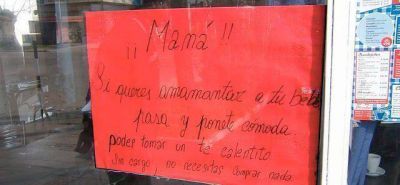 ¡¡Mamá!!
Si queres amamantar a tu bebé
pasa y ponete cómoda.
podes tomar un té calentito
Sin cargo, no necesitas comprar nada.